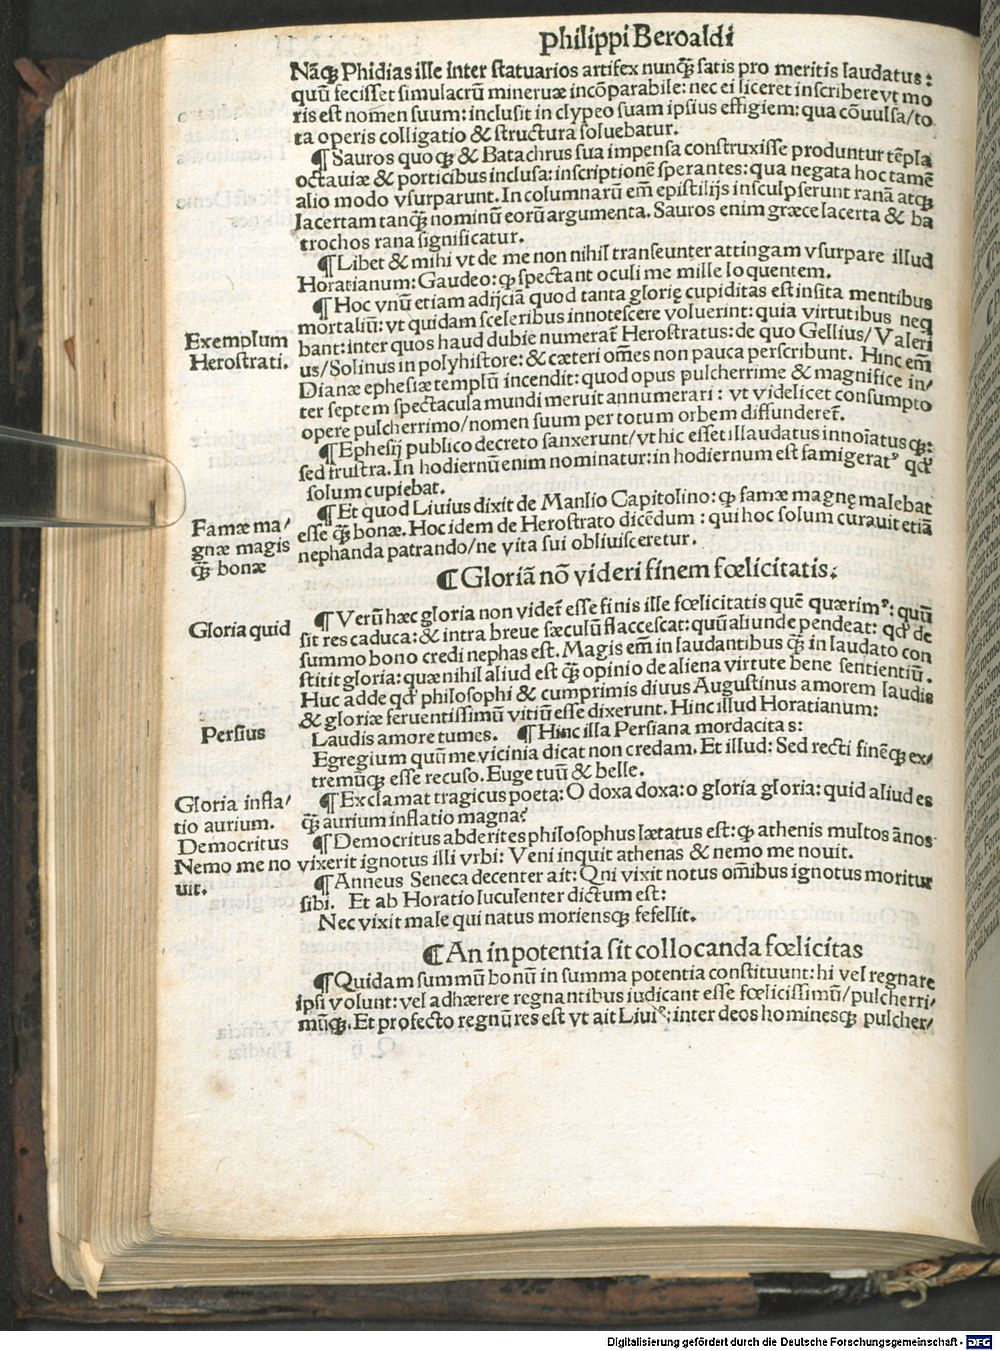 philippi Beroaldi
Nāqȝ Phidias ille inter statuarios artifex nunq̄ȝ satis pro meritis laudatus:
quū fecisset simulacrū mineruæ incōparabile: nec ei liceret inscribere vt mo
ris est nomen suum: inclusit in clypeo suam ipsius effigiem: qua cōuulsa/to
ta operis colligatio & structura soluebatur.
¶ Sauros quoqȝ & Batachrus sua impensa construxisse produntur tēpla
octauiæ & porticibus inclusa: inscriptionē sperantes: qua negata hoc tamē
alio modo vsurparunt. In columnarū em̄ epistilijs insculpserunt ranā atqȝ
lacertam tanq̄ȝ nominū eorū argumenta. Sauros enim græce lacerta & ba
trochos rana significatur.
¶ Libet & mihi vt de me non nihil transeunter attingam vsurpare illud
Horatianum: Gaudeo: qꝫ spectant oculi me mille loquentem.
¶ Hoc vnū etiam adijciā quod tanta glorię cupiditas est insita mentibus
mortaliū: vt quidam sceleribus innotescere voluerint: quia virtutibus neq
Exemplum
bant: inter quos haud dubie numerat̄ Herostratus: de quo Gellius/Valeri
Herostrati.
us/Solinus in polyhistore: & cæteri om̄es non pauca perscribunt. Hinc em̄
Dianæ ephesiæ templū incendit: quod opus pulcherrime & magnifice in/
ter septem spectacula mundi meruit annumerari: vt videlicet consumpto
opere pulcherrimo/nomen suum per totum orbem diffunderet̄.
¶ Ephesij publico decreto sanxerunt/vt hic esset illaudatus innoīatusqȝ:
sed frustra. In hodiernū enim nominatur: in hodiernum est famigeratꝰ qd̄
solum cupiebat.
¶ Et quod Liuius dixit de Manlio Capitolino: qꝫ famæ magnę malebat
Famæ ma/
esse q̄ȝ bonæ. Hoc idem de Herostrato dicēdum: qui hoc solum curauit etiā
gnæ magis
nephanda patrando/ne vita sui obliuisceretur.
q̄ȝ bonæ
¶ Gloriā nō videri finem fœlicitatis:
¶ Verū hæc gloria non videt̄ esse finis ille fœlicitatis quē quærimꝰ: quū
Gloria quid
sit res caduca: & intra breue sæculū flaccescat: quū aliunde pendeat: qd̄ de
summo bono credi nephas est. Magis em̄ in laudantibus q̄ȝ in laudato con
stitit gloria: quæ nihil aliud est q̄ȝ opinio de aliena virtute bene sentientiū.
Huc adde qd̄ philosophi & cumprimis diuus Augustinus amorem laudis
& gloriæ feruentissimū vitiū esse dixerunt. Hinc illud Horatianum:
Persius
Laudis amore tumes. ¶ Hinc illa Persiana mordacitas:
Egregium quū me vicinia dicat non credam. Et illud: Sed recti finēqȝ ex/
tremūqȝ esse recuso. Euge tuū & belle.
Gloria infla/
¶ Exclamat tragicus poeta: O doxa doxa: o gloria gloria: quid aliud es
tio aurium.
q̄ȝ aurium inflatio magna?
Democritus
¶ Democritus abderites philosophus lætatus est: qꝫ athenis multos ānos
Nemo me no
vixerit ignotus illi vrbi: Veni inquit athenas & nemo me nouit.
uit.
¶ Anneus Seneca decenter ait: Qni vixit notus om̄ibus ignotus moritur
sibi. Et ab Horatio luculenter dictum est:
Nec vixit male qui natus moriensqȝ fefellit.
¶ An in potentia sit collocanda fœlicitas
¶ Quidam summū bonū in summa potentia constituunt: hi vel regnare
ipsi volunt: vel adhærere regnantibus iudicant esse fœlicissimū/pulcherri/
mūqȝ. Et profecto regnū res est vt ait Liuiꝰ: inter deos hominesqȝ pulcher/
Digitalisierung gefördert durch die Deutsche Forschungsgemeinschaft - DFG